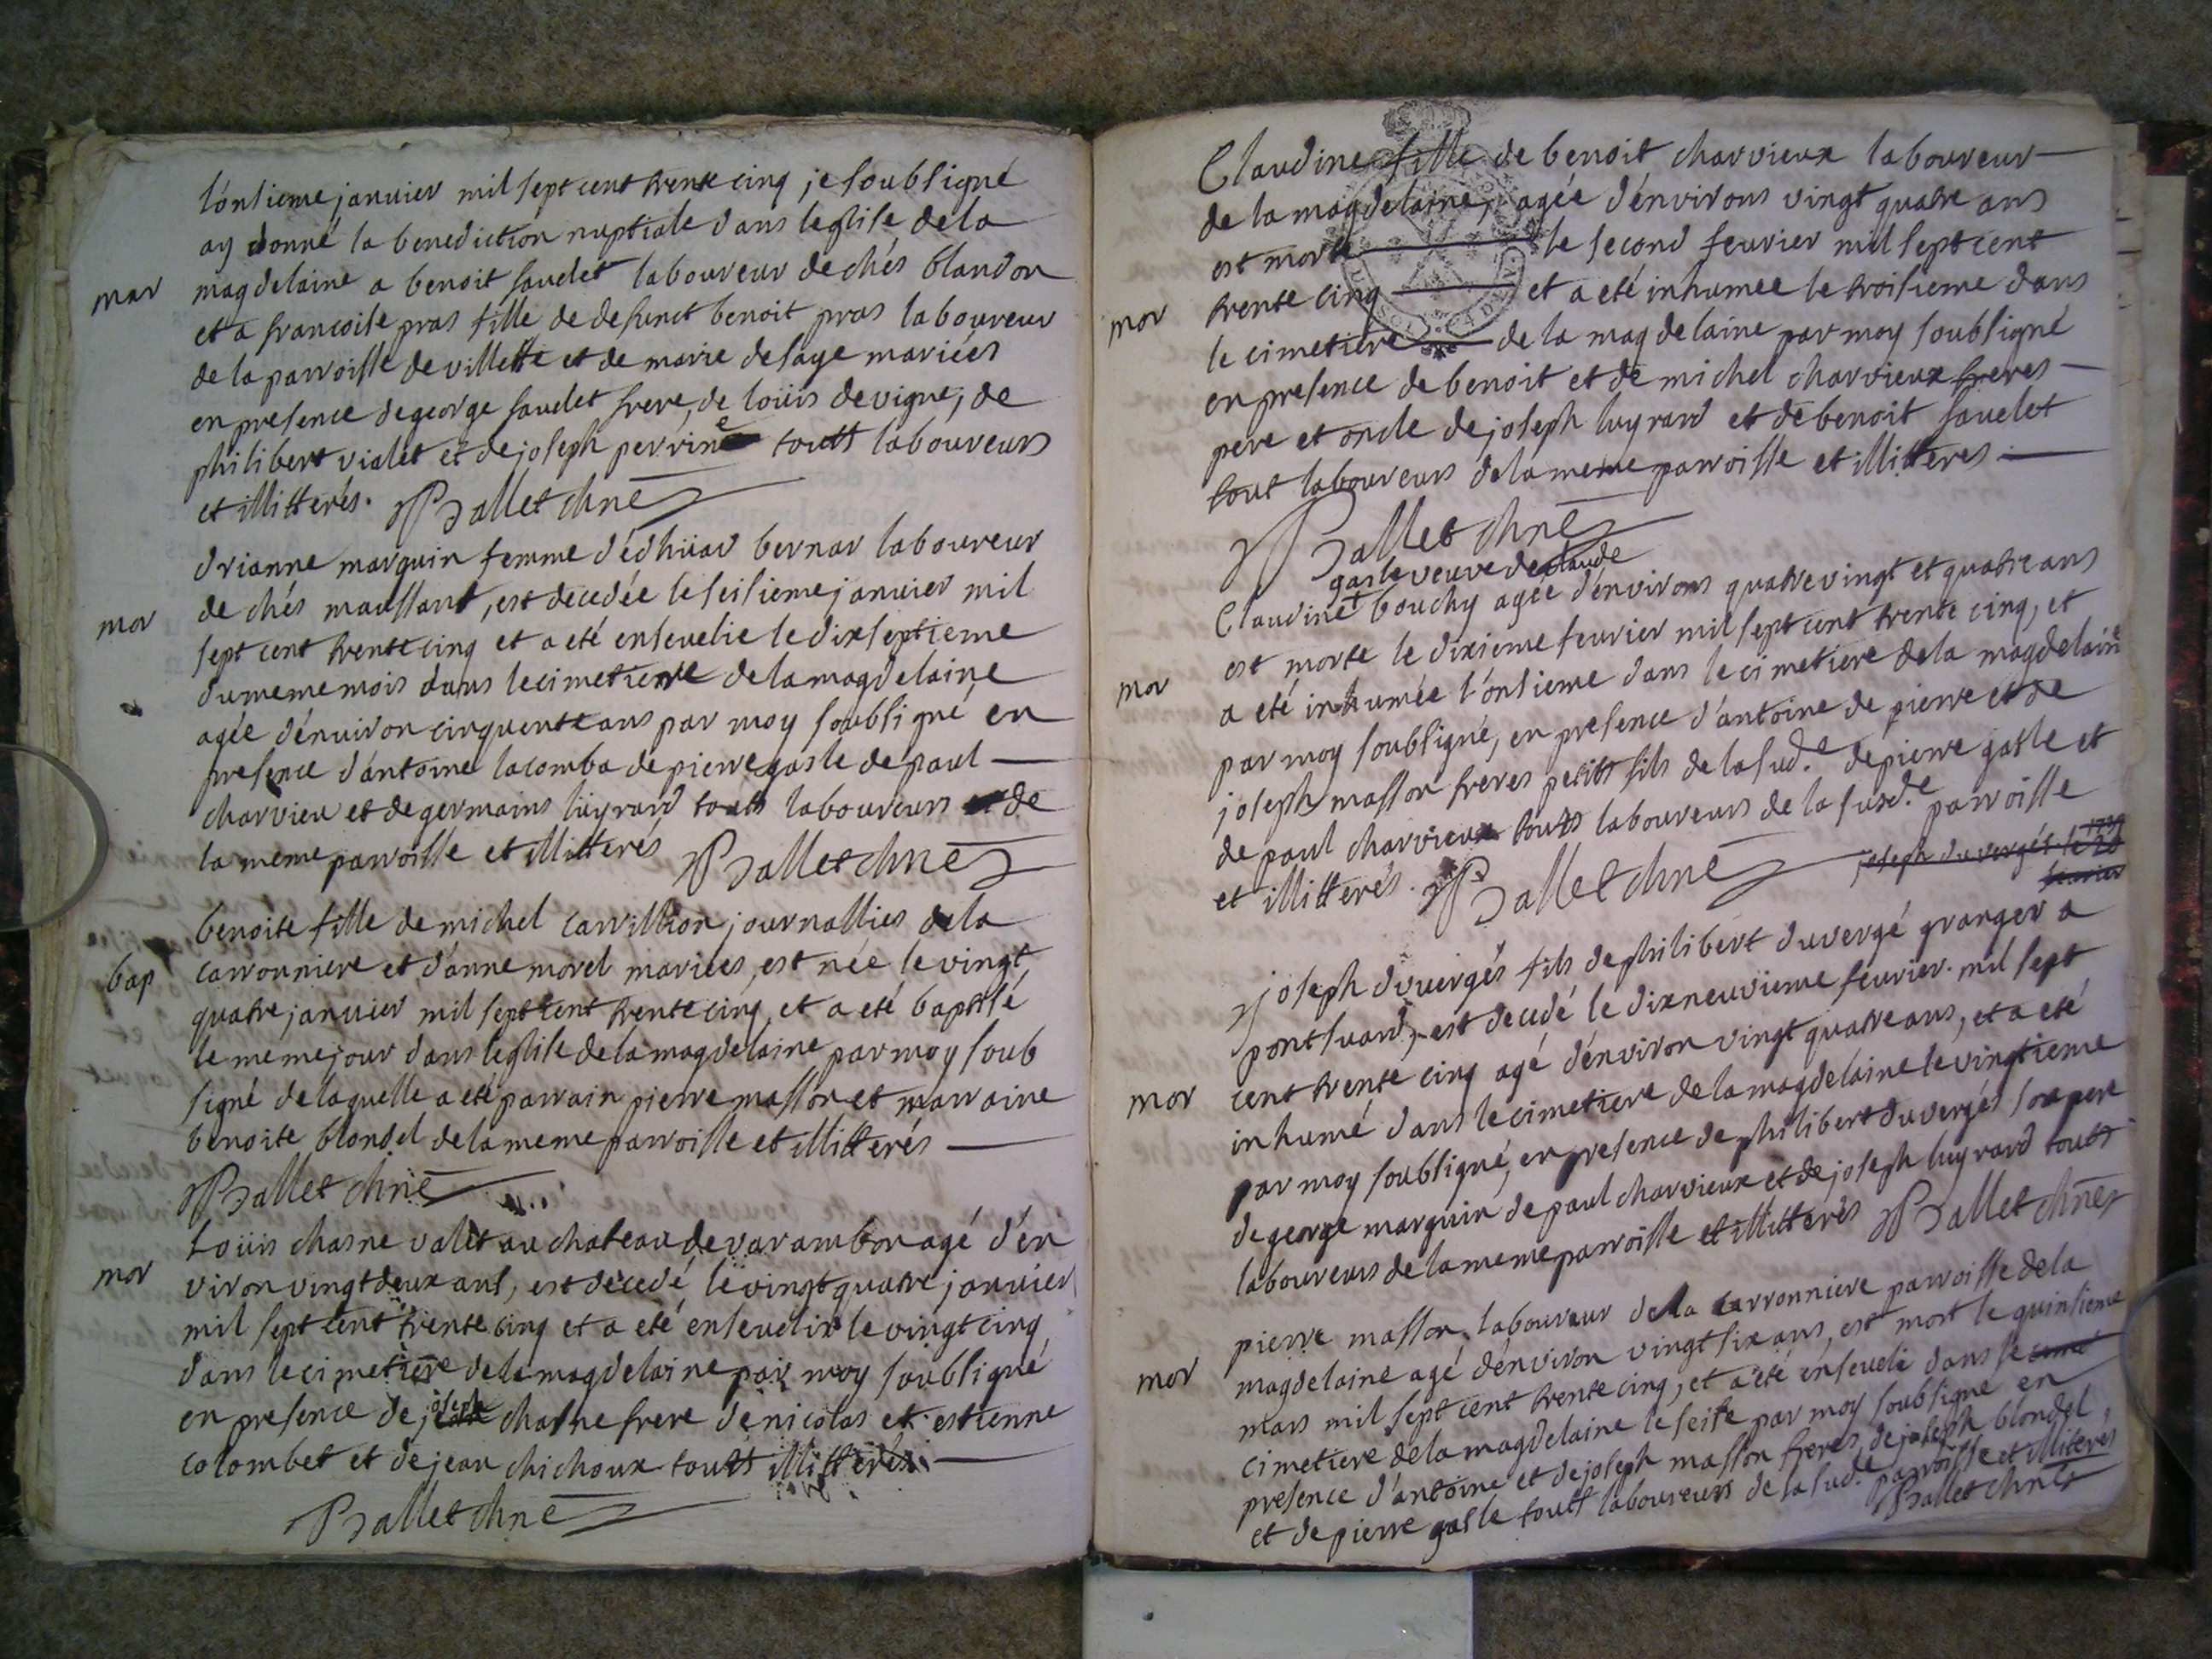 l'onsieme januier mil sept cent trente cinq je soubsigné
ay donné la benediction nuptiale dans leglise dela
mar magdelaine a benoit saudet laboureur de chés blandon
et a francoise pras fille de defunct benoit pras laboureur
de la parroisse de villette et de marie de saye mariées
en presence de george saudet frere, de loüis devigne, de
philibert vialet et de joseph perrine touts laboureurs
et illitterés. Ballet chne
drianne marguin femme d'édhüar bernar laboureur
mor de chés maussant, est decedée le seisieme januier mil
sept cent trente cinq et a eté enseuelie le dixseptieme
du meme mois dans le cimetiere de la magdelaine
agée d'énuiron cinquente ans par moy soubsigné en
presence d'antoine lacomba de pierre gasle de paul
charvieu et de germains luyrard touts laboureurs de
la meme parroisse et illitterés Ballet chne
benoite fille de michel carrillion journallies dela
bap carronniere et d'anne morel mariées, est née le vingt
quatre januier mil sept cent trente cinq et a eté baptisé
le meme jour dans l'eglise de la magdelaine par moy soub
signé de laquelle a eté parrain pierre masson et marraine
benoite blondel de la meme parroisse et illitterés
Ballet chne
Loüis chasne valet au chateau de varambon agé d'én
mor viron vingt deux ans, est décedé le vingt quatre januier
mil sept cent trente cinq et a eté enseuelir le vingt cinq
dans le cimetiere de la magdelaine par moy soubsigné
en presence de joseph chasne frere de nicolas et estienne
colombet et de jean chichoux touts illitterés
Ballet chne
Claudine fille de benoit charvieux laboureur
de la magdelaine, agée d'énvirons vingt quatre ans
est morte le second feurier mil sept cent
mor trente cinq et a eté inhumée le troisieme dans
le cimetiere de la magdelaine par moy soubsigné
en presence de benoit et de michel charvieux freres
pere et oncle de joseph luyrard et de benoit saudet
tout laboureurs de la meme parroisse et illitteres
Ballet chne
gasle veuve de claude
Claudine bouchy agée d'énvirons quatre vingt et quatre ans
est morte le dixieme feurier mil sept cent trente cinq, et
mor a eté inhumée l'onsieme dans le cimetiere de la magdelaine
par moy soubsigné, en presence d'antoine de pierre et de
joseph masson freres petits fils de la sud.e de pierre gasle et
de paul charvieux touts laboureurs de la susd.e parroisse
et illitterés. Ballet chne joseph du vergés le 20
feurier
joseph duuergés fils de philibert duvergé granger a
pontsuard, est decedé le dixneuvieme feurier mil sept
mor cent trente cinq agé d'énviron vingt quatre ans, et a eté
inhumé dans le cimetiere de la magdelaine le vingtieme
par moy soubsigné, en presence de philibert duvergés son pere
de george marguin de paul charvieux et de joseph luyrard touts
laboureurs de la meme parroisse et illitterés Ballet chne
pierre masson laboureur de la carronniere parroisse dela
mor magdelaine agé d'énviron vingt six ans, est mort le quinsieme
mars mil sept cent trente cinq, et a eté énseueli dans le
cimetiere dela magdelaine le seise par moy soubsigné en
presence d'antoine et de joseph masson freres, de joseph blondel,
et de pierre gasle touts laboureurs de la sud.e parroisse et illiterés
Ballet chne